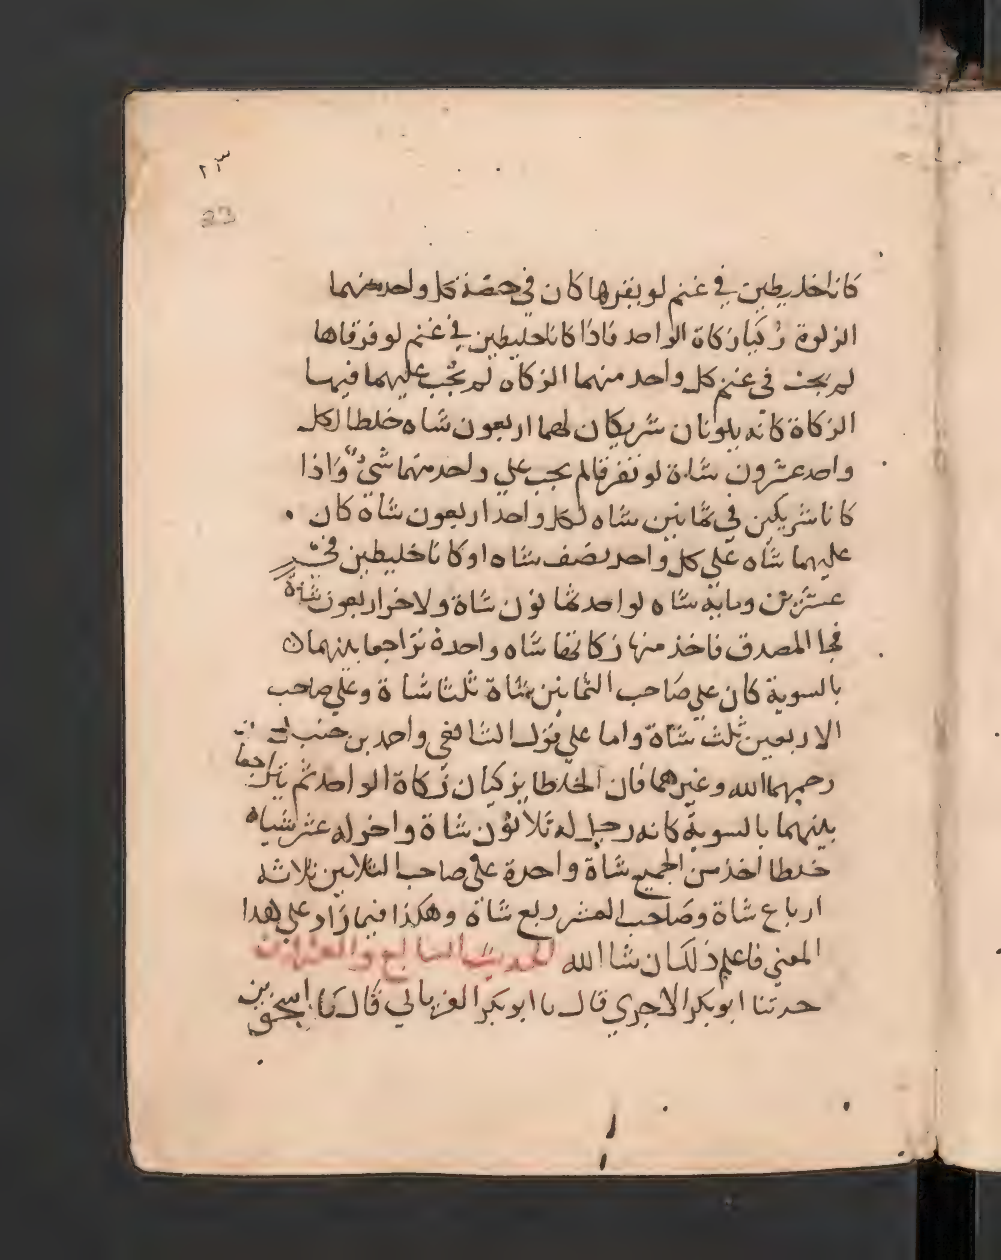 ٢٣
23
كانا خليطين في غنم لو يفرها كان في حصة كل واحد منهما
الزكوة زكيا زكاة الواحد فاذا كانا خليطين في غنم لو فرقاها
لم يجب في غنم كل واحد منهما الزكاة لم يجب عليهما فيها
الزكاة كانه يكونان شريكان لهما اربعون شاه خلطا لكل
واحد عشرون شاة لو تفرقا لم يجب علي واحد منهما شيء واذا
كانا شريكين في ثمانين شاه لكل واحد اربعون شاة كان
عليهما شاه علي كل واحد نصف شاه او كانا خليطين في
عشرين وماية شاه لواحد ثمانون شاة ولاخر اربعون شاة
فجا المصدق فاخذ منها زكاتها شاه واحدة تراجعا بينهما
بالسوية كان علي صاحب الثمانين شاة ثلثا شاة وعلي صاحب
الاربعين ثلث شاة واما علي قول الشافعي واحمد بن حنبل
رحمهما الله وغيرهما فان الخلطا يزكيان زكاة الواحد ثم يتراجعا
بينهما بالسوية كانه رجل له ثلاثون شاة واخر له عشر شياه
خلطا اخذ من الجميع شاة واحدة علي صاحب الثلاثين ثلاثه
ارباع شاة وصاحب العشر ربع شاة وهكذا فيما زاد علي هذا
المعني فاعلم ذلك ان شا الله الحديث السابع والعشرون
حدثنا ابو بكر الاجري قال نا ابو بكر الفريابي قال نا اسحق بن